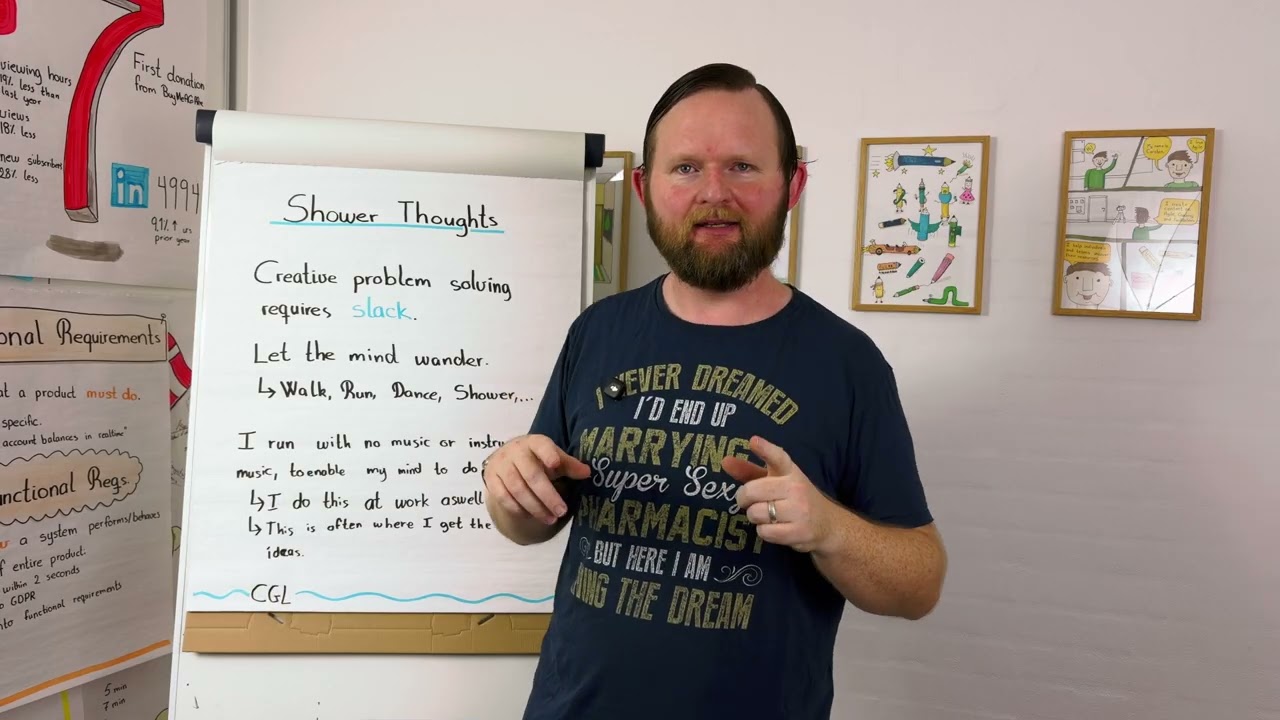 First donation
viewing hours
19% less than
last year
views
18% less
new subscribers
28% less
in 4994
9.1% ↑ vs
prior year
onal Requirements
at a product must do.
specific.
account balances in realtime"
nctional Reqs.
a system performs/behaves
f entire product.
within 2 seconds
GDPR
nto functional requirements
5 min
7 min
Shower Thoughts
Creative problem solving
requires slack.
Let the mind wander.
↳ Walk, Run, Dance, Shower,...
I run with no music or instru
music, to enable my mind to do
↳ I do this at work aswell
↳ This is often where I get the
ideas.
CGL
I NEVER DREAMED
I'D END UP
MARRYING
Super Sexy
PHARMACIST
BUT HERE I AM
ING THE DREAM